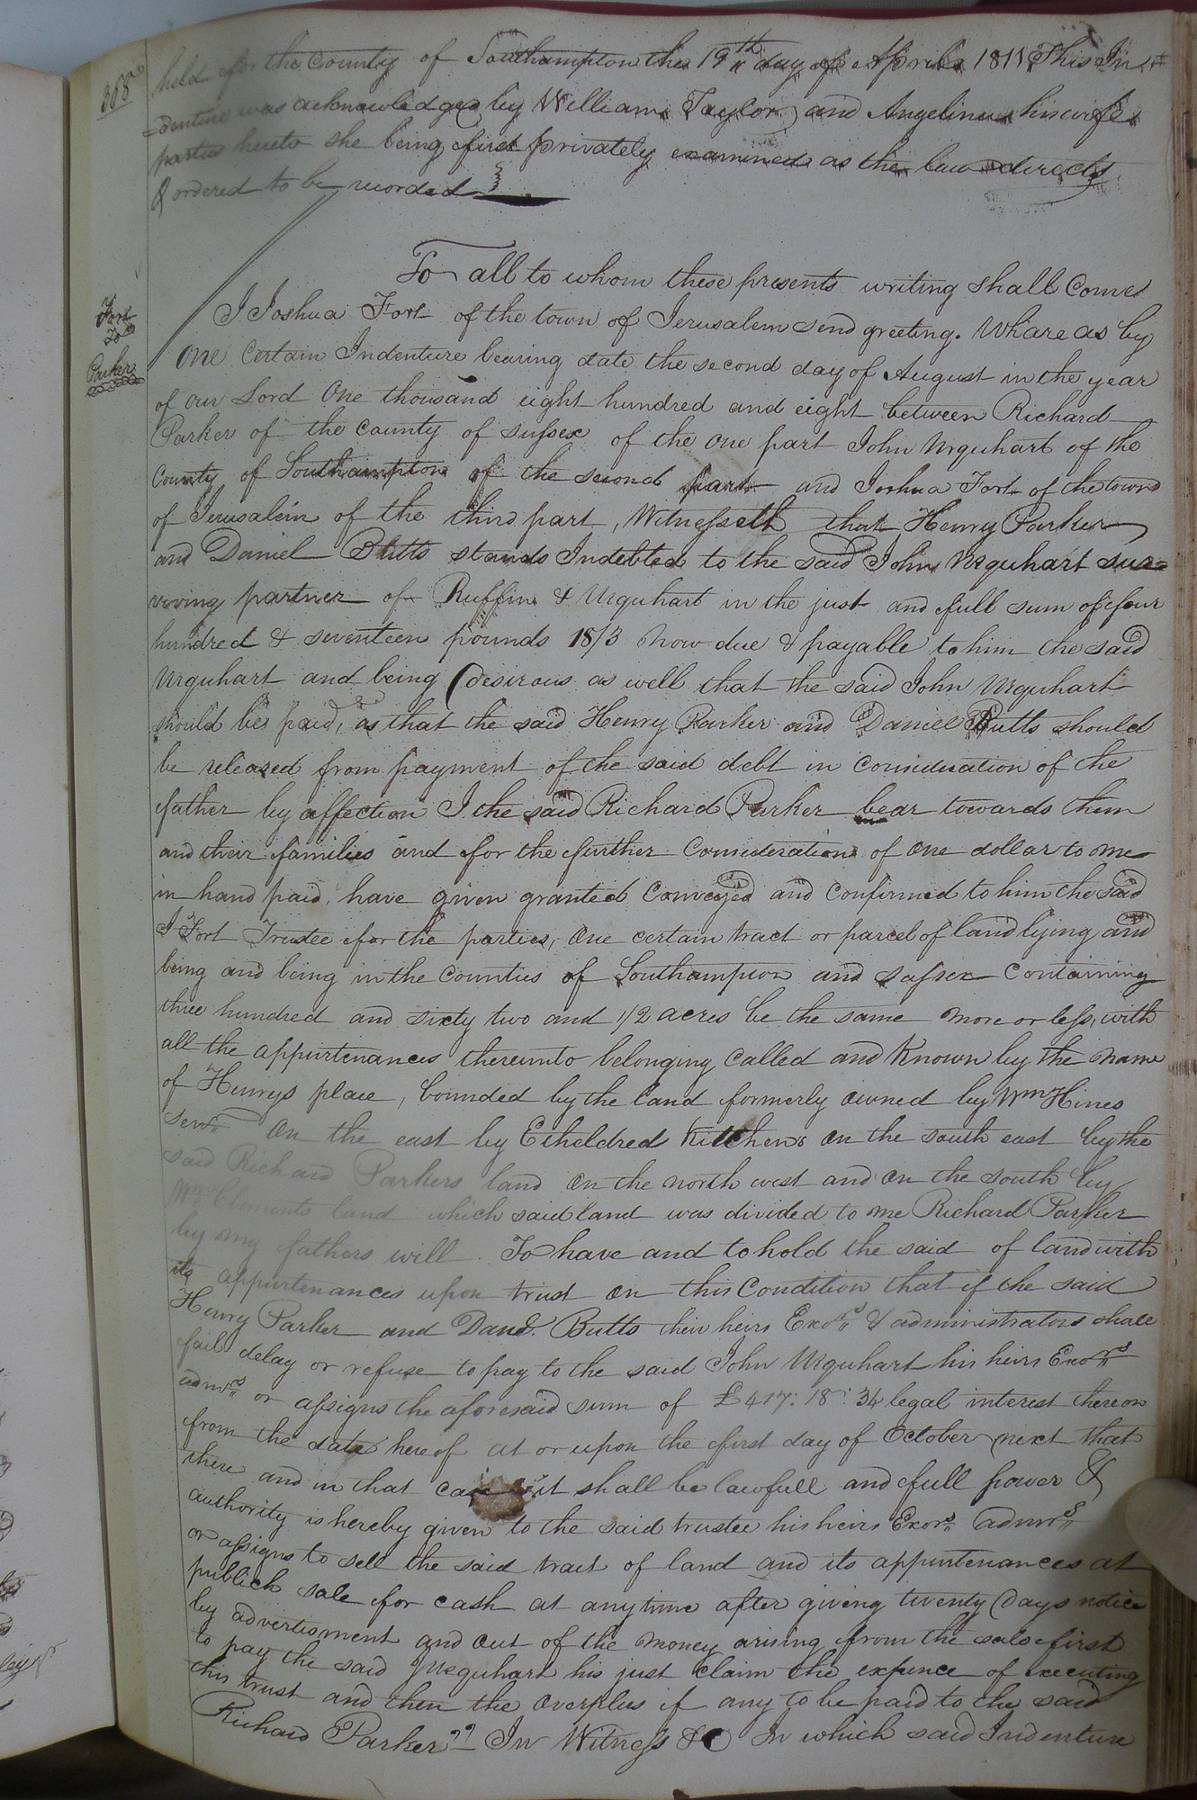 368
held for the County of Southampton the 19th day of April 1811 This In=
denture was acknowledged by William Taylor and Angelina his wife
parties hereto she being first privately examined as the law directs
& ordered to be recorded
Fort
to
Parker
To all to whom these presents writing shall Come
I Joshua Fort of the town of Jerusalem send greeting. Whare as by
one Certain Indenture bearing date the second day of August in the year
of our Lord One thousand eight hundred and eight between Richard
Parker of the County of Sussex of the one part John Urquhart of the
County of Southampton of the second part and Joshua Fort of the town
of Jerusalem of the third part, Witnesseth that Henry Parker
and Daniel Butts stands Indebted to the said John Urquhart sur=
viving partner of Ruffin & Urquhart in the just and full sum of four
hundred & seventeen pounds 18/3 now due & payable to him the said
Urquhart and being desirous as well that the said John Urquhart
should be paid, as that the said Henry Parker and Daniel Butts should
be released from payment of the said debt in Consideration of the
father by affection I the said Richard Parker bear towards them
and their families and for the further Consideration of one dollar to me
in hand paid, have given granted Conveyed and Confirmed to him the said
J Fort Trustee for the parties, One certain tract or parcel of land lying and
being and being in the Counties of Southampton and Sussex Containing
three hundred and sixty two and 1/2 acres be the same more or less, with
all the appurtenances thereunto belonging Called and Known by the name
of Henrys place, bounded by the land formerly owned by Wm Hines
Senr On the east by Etheldred Kitchens on the south east by the
said Richard Parkers land on the north west and on the south by
Wm Clements land which said land was divided to me Richard Parker
by my fathers will. To have and to hold the said of land with
its appurtenances upon trust On this Condition that if the said
Henry Parker and Danl. Butts their heirs Exors & administrators shall
fail delay or refuse to pay to the said John Urquhart his heirs Exors
admrs or assigns the aforesaid sum of £417: 18: 3 & legal interest thereon
from the date hereof at or upon the first day of October next that
there and in that case it shall be lawfull and full power &
authority is hereby given to the said trustee his heirs Exors admrs
or assigns to sell the said tract of land and its appurtenances at
publick sale for cash at any time after giving twenty days notice
by advertisment and out of the money arising from the sale first
to pay the said J Urquhart his just Claim the expence of executing
this trust and then the overplus if any to be paid to the said
Richard Parker" In Witness &C In which said Indenture